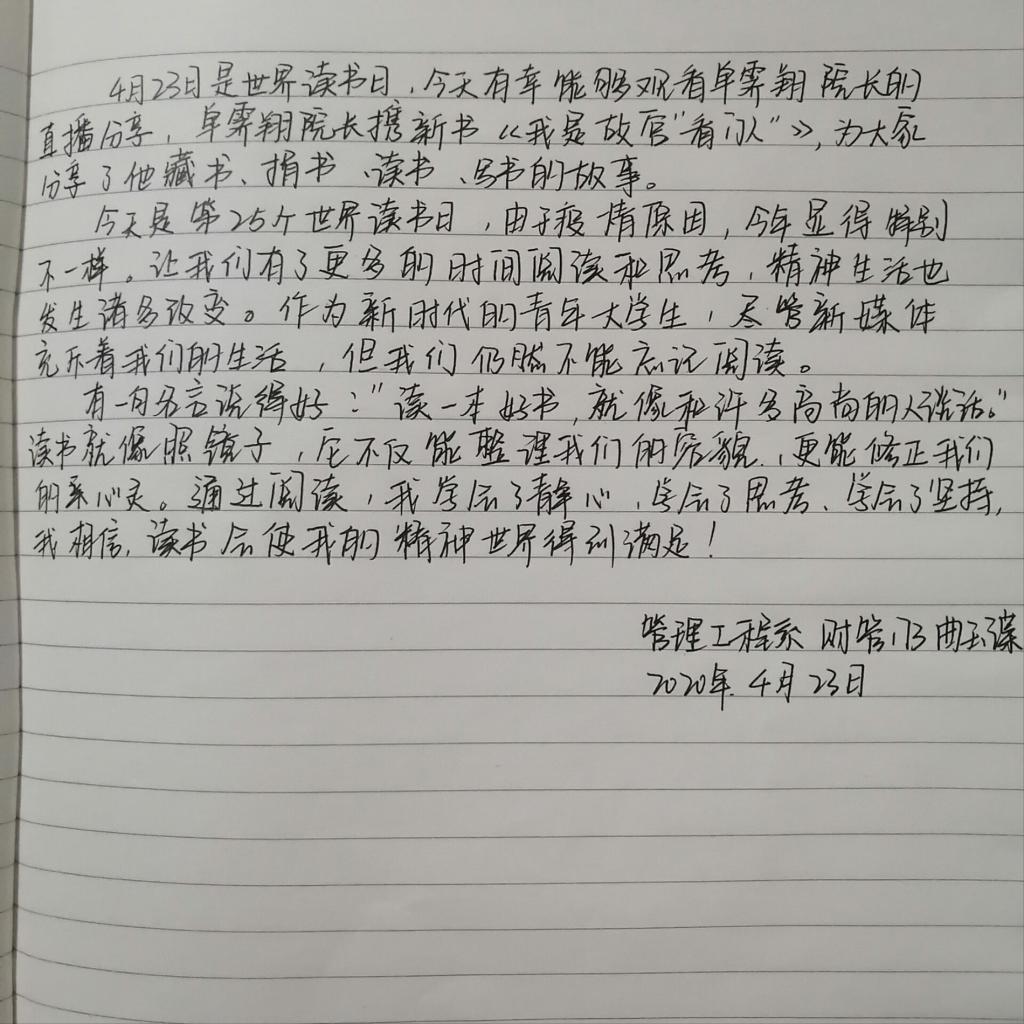 4月23日是世界读书日，今天有幸能够观看单霁翔院长的
直播分享，单霁翔院长携新书《我是故宫"看门人"》，为大家
分享了他藏书、捐书、读书、写书的故事。
今天是第25个世界读书日，由于疫情原因，今年显得特别
不一样。让我们有了更多的时间阅读和思考，精神生活也
发生诸多改变。作为新时代的青年大学生，尽管新媒体
充斥着我们的生活，但我们仍然不能忘记阅读。
有一句名言说得好："读一本好书，就像和许多高尚的人谈话。"
读书就像照镜子，它不仅能整理我们的容貌，更能修正我们
的心灵。通过阅读，我学会了静心，学会了思考、学会了坚持，
我相信，读书会使我的精神世界得到满足！
管理工程系 财管173 曲玉
2020年4月23日